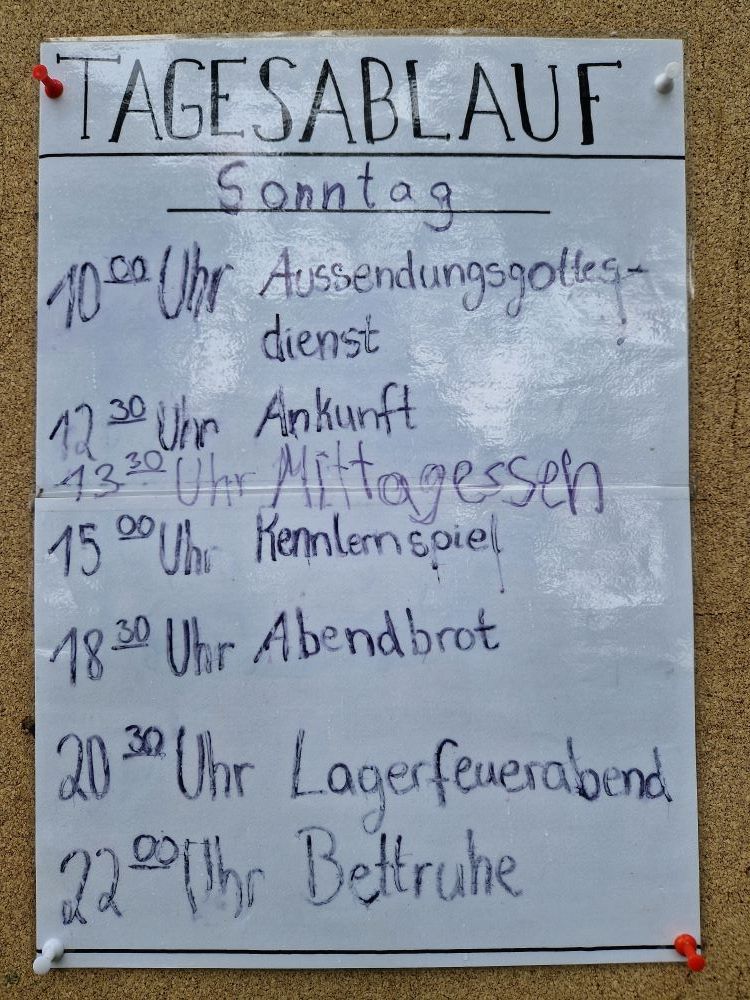 TAGESABLAUF
Sonntag
10 00 Uhr Aussendungsgottes-
dienst
12 30 Uhr Ankunft
13 30 Uhr Mittagessen
15 00 Uhr Kennlernspiel
18 30 Uhr Abendbrot
20 30 Uhr Lagerfeuerabend
22 00 Uhr Bettruhe